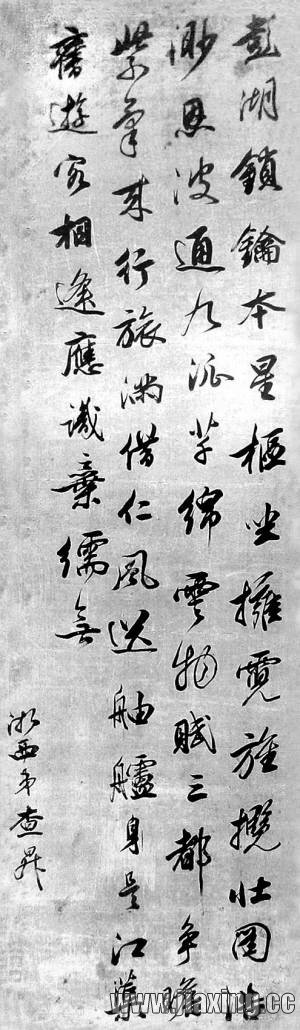 彭湖鎖鑰本星樞坐擁霓旌攬壯圖浩
渺恩波通九派芊綿雲物賦三都爭瞻
紫氣來行旅滿借仁風送舳艫身是江
舊遊客相逢應識棄繻無
浙西弟查昇
www.jiaxing.cc